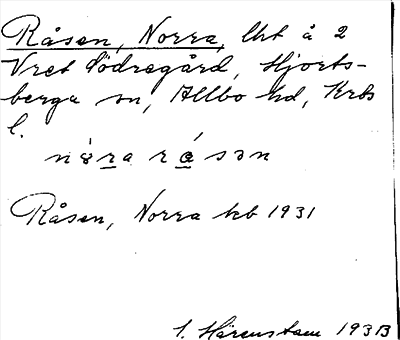 Råsen, Norra, lht å 2
Vret Södregård, Hjorts-
berga sn, Allbo hd, Krbs
l.
Råsen, Norra kb 1931
S. Härenstam 1931